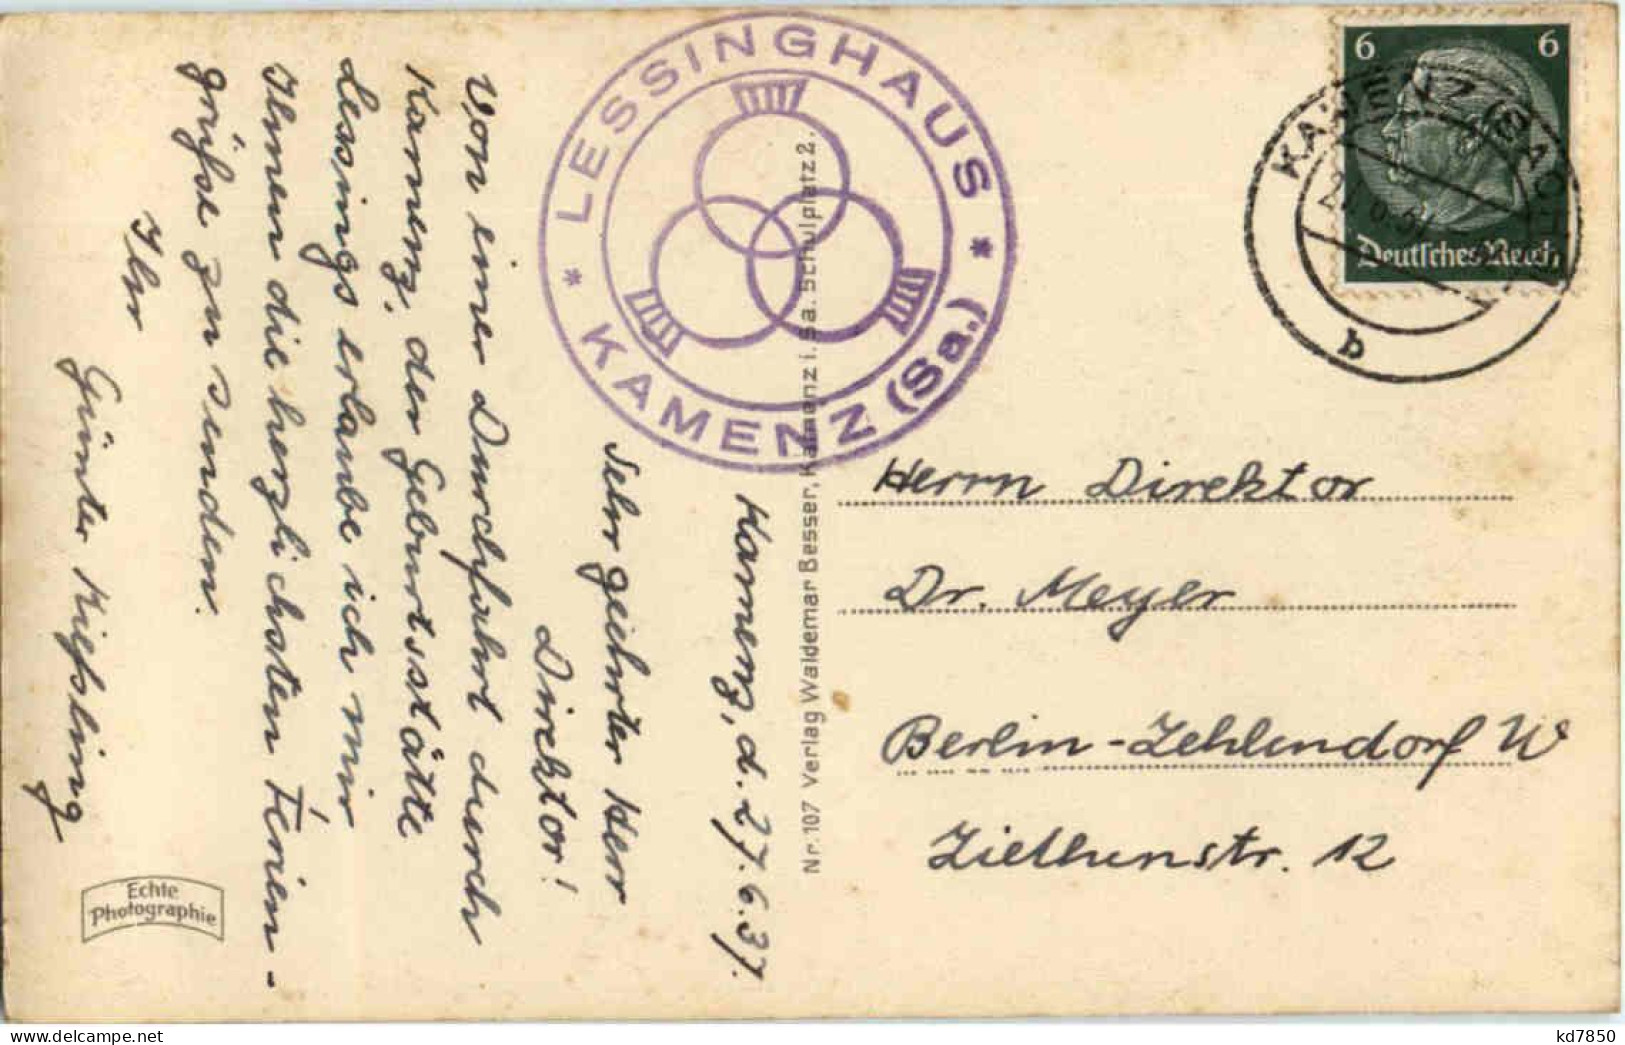 Kamenz, d. 27.6.37.
Sehr geehrter Herr
Direktor!
Von einer Durchfahrt durch
Kamenz, der Geburtsstätte
Lessings erlaube ich mir
Ihnen die herzlichsten Ferien-
grüße zu senden.
Ihr
Günter Kießling
Echte
Photographie
LESSINGHAUS
* KAMENZ (Sa.) *
Nr. 107 Verlag Waldemar Besser, Kamenz i. Sa. Schulplatz 2.
6 6
Deutsches Reich
KAMENZ (SACHS)
b
Herrn Direktor
Dr. Meyer
Berlin-Zehlendorf W
Ziethenstr. 12
kd7850